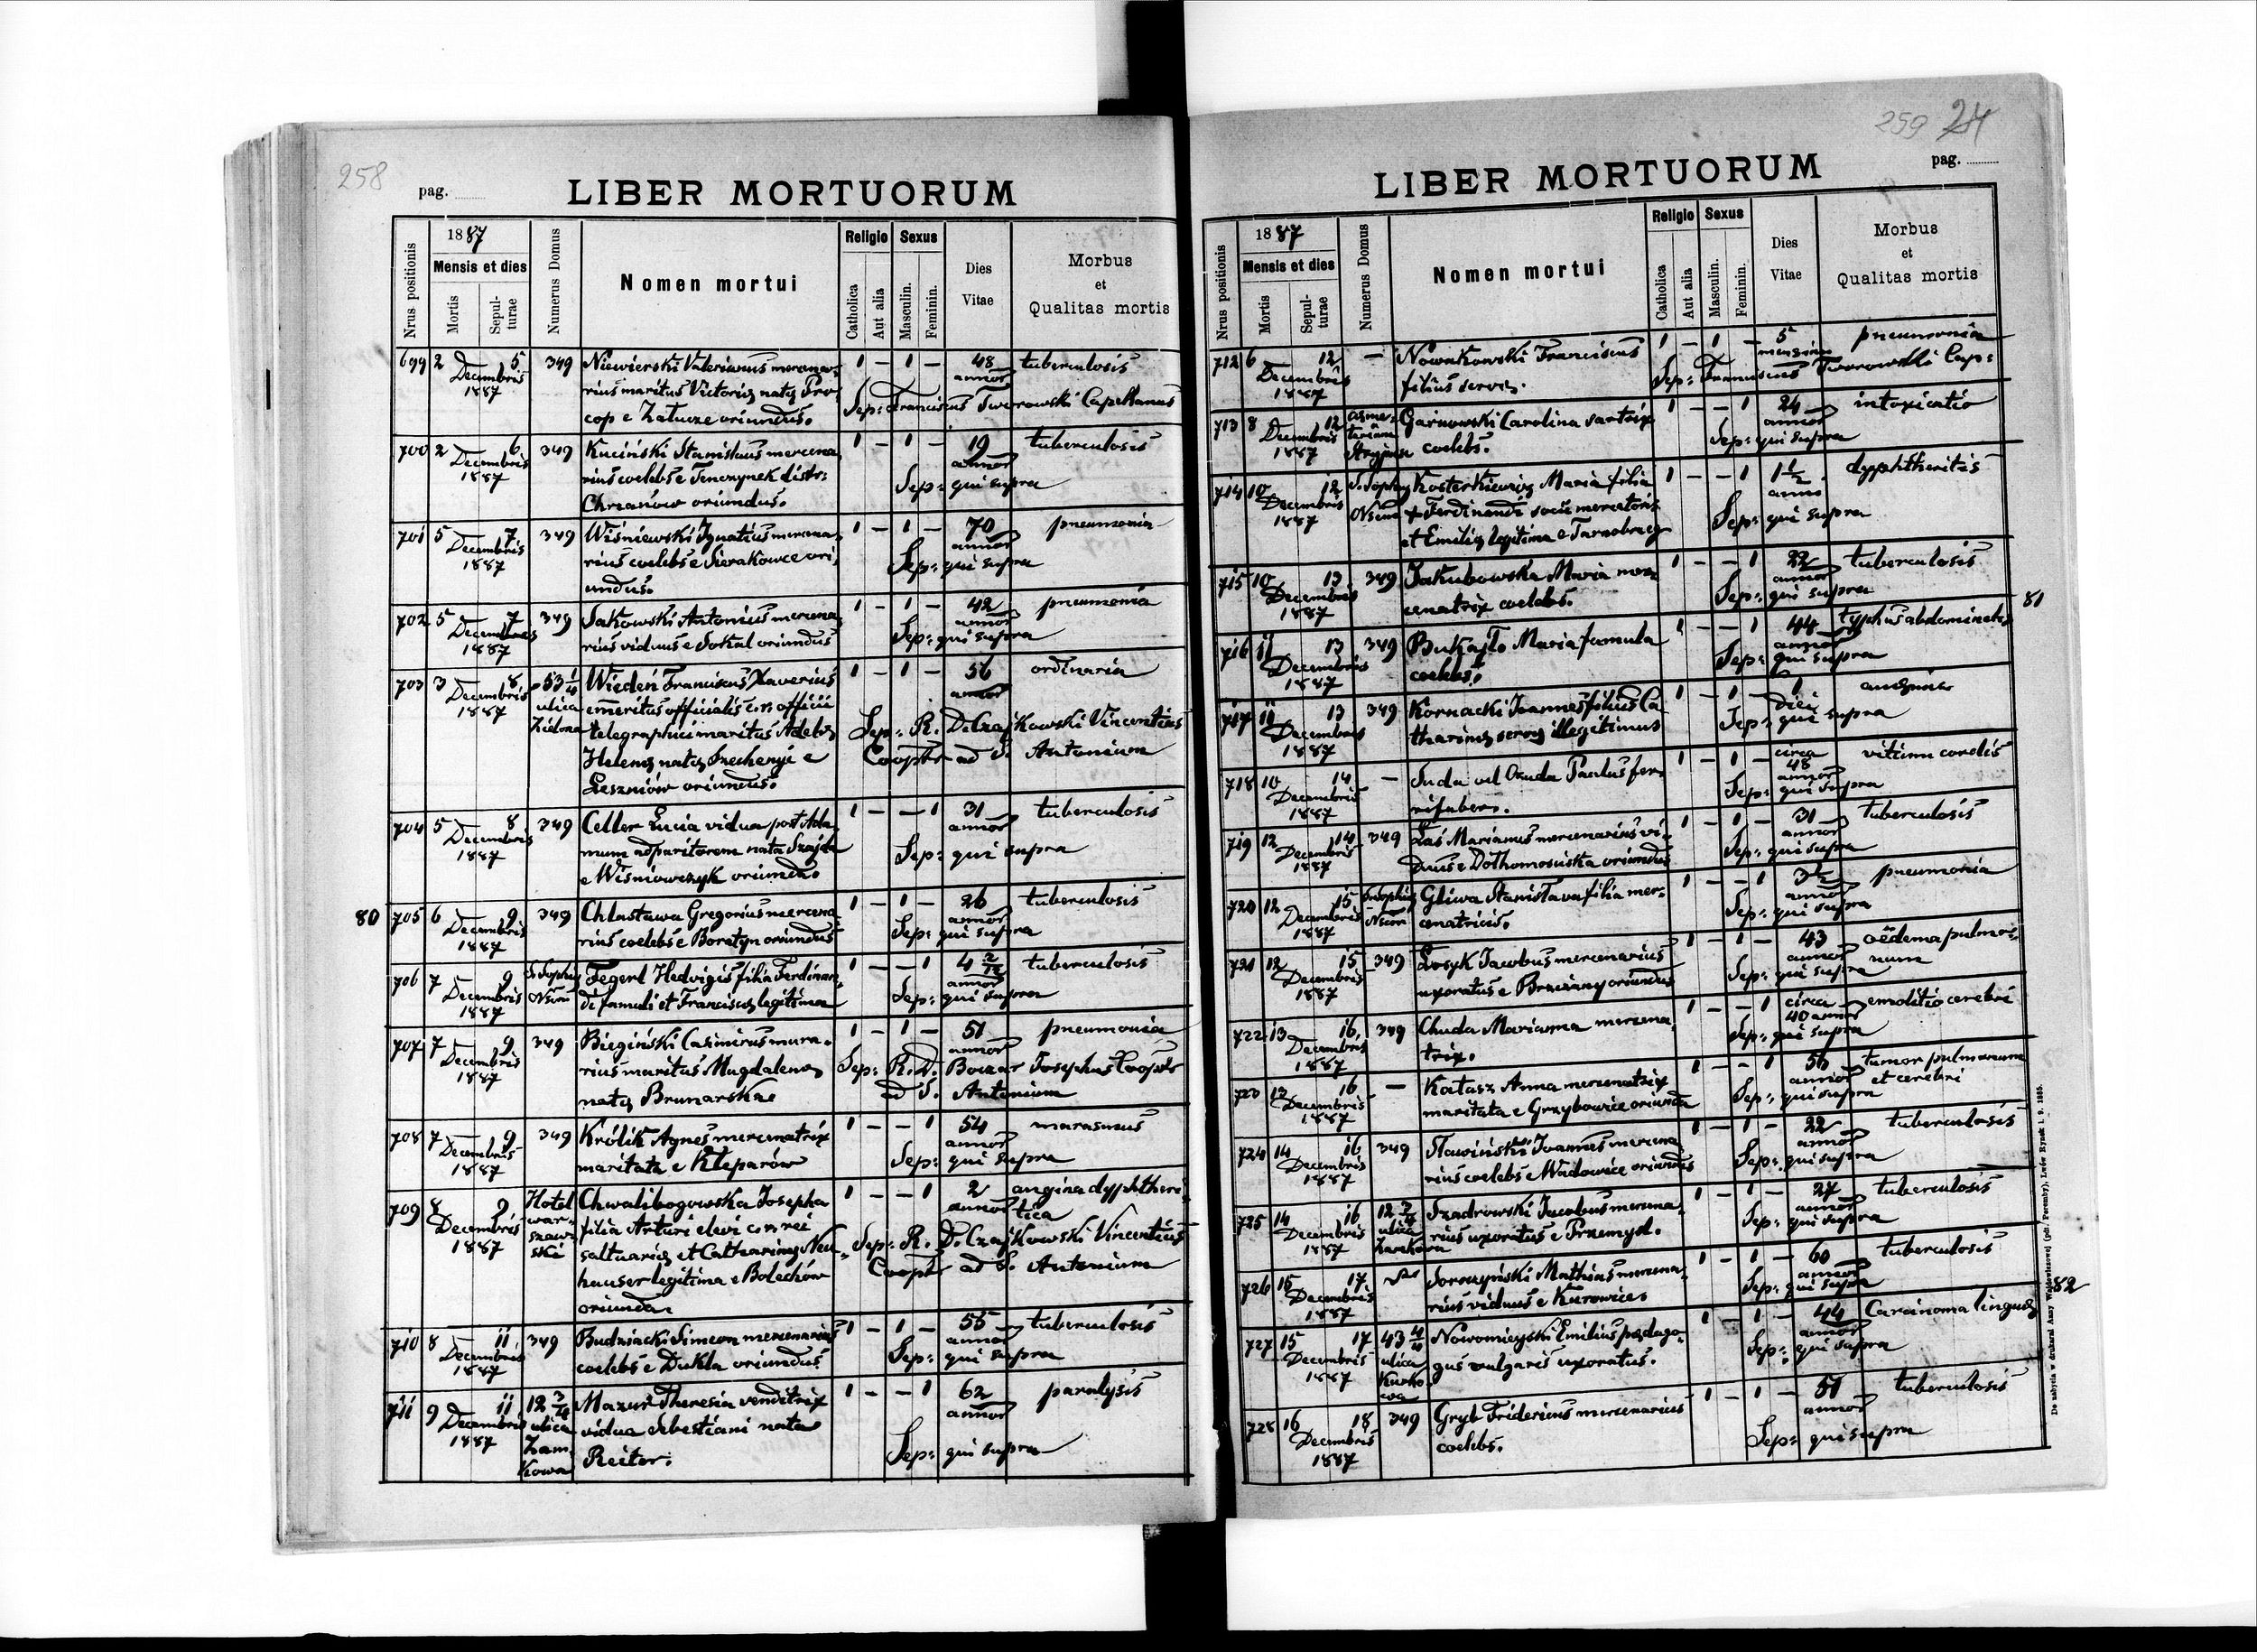 258
pag. ..........
LIBER MORTUORUM
Nrus positionis
1887
Mensis et dies
Mortis
Sepul-
turae
Numerus Domus
Nomen mortui
Religio
Catholica
Aut alia
Sexus
Masculin.
Feminin.
Dies
Vitae
Morbus
et
Qualitas mortis
699 2 5 349 Niewierski Valerianus mercena- 1 – 1 – 48 tuberculosis
Decembris rius maritus Victoriæ natæ Pro- annor
1887 cop e Załucze oriundus. Sep: Franciscus Tworowski Capellanus
700 2 6 349 Kuciński Stanislaus mercena 1 – 1 – 19 tuberculosis
Decembris rius coelebs e Tenczynek distr: annor
1887 Chrzanów oriundus. Sep: qui supra
701 5 7 349 Wiśniewski Ignatius mercena 1 – 1 – 70 pneumonia
Decembris rius coelebs e Sierakowce ori annor
1887 undus. Sep: qui supra
702 5 7 349 Sakowski Antonius mercena 1 – 1 – 42 pneumonia
Decembres rius viduus e Sokal oriundus annor
1887 Sep: qui supra
703 3 8 53 1/4 Wiedeń Franciscus Xaverius 1 – 1 – 56 ordinaria
Decembris ulica emeritus officialis c. r. officii annor
1887 Zielona telegraphici maritus Adelæ Sep: R. D. Czajkowski Vincentius
Helenæ natæ Szechenyi e Cooptr ad S. Antonium
Leszniów oriundus.
704 5 8 349 Celler Lucia vidua post Ada 1 – – 1 31 tuberculosis
Decembris mum adparitorem nata Szajda annor
1887 e Wiśniowczyk oriunda. Sep: qui supra
80
705 6 9 349 Chlastawa Gregorius mercena 1 – 1 – 26 tuberculosis
Decembris rius coelebs e Boratyn oriundus annor
1887 Sep: qui supra
706 7 9 S. Sophiæ Tegerl Hedvigis filia Ferdinan 1 – – 1 4 2/12 tuberculosis
Decembris di famuli et Franciscæ legitima annor
1887 Sep: qui supra
707 7 9 349 Biegiński Casimirus mura- 1 – 1 – 51 pneumonia
Decembris rius maritus Magdalenæ annor
1887 natæ Brunarska Sep: R. D. Boczar Josephus Cooptr
ad S. Antonium
708 7 9 349 Królik Agnes mercenatrix 1 – – 1 54 marasmus
Decembris maritata e Kleparów annor
1887 Sep: qui supra
709 8 9 Hotel Chwalibogowska Josepha 1 – – 1 2 angina dyphtheri
Decembris war- filia Arturi elevi c. r. rei annor tica
1887 szaw- saltuariæ et Catharinæ Neu Sep: R. D. Czajkowski Vincentius
ski hauser legitima e Bolechów Cooptr ad S. Antonium
oriunda
710 8 11 349 Budziacki Simeon mercenarius 1 – 1 – 55 tuberculosis
Decembris coelebs e Dukla oriundus annor
1887 Sep: qui supra
711 9 11 12 3/4 Mazur Theresia venditrix 1 – – 1 62 paralysis
Decembris ulica vidua Sebestiani nata annor
1887 Zam Reitor. Sep: qui supra
kowa
259
pag. ..........
LIBER MORTUORUM
Nrus positionis
1887
Mensis et dies
Mortis
Sepul-
turae
Numerus Domus
Nomen mortui
Religio
Catholica
Aut alia
Sexus
Masculin.
Feminin.
Dies
Vitae
Morbus
et
Qualitas mortis
712 6 12 – Nowakowski Franciscus 1 – 1 – 5 pneumonia
Decembris filius servæ. mensium
1887 Sep: Franciscus Tworowski Cap:
713 8 12 Garnowski Carolina sartrix 1 – – 1 24 intoxicatio
Decembris coelebs. annor
1887 Stryjense Sep: qui supra
714 10 12 S. Sophiæ Kosterkiewicz Maria filia 1 – – 1 1 1/2 dyphtheritis
Decembris + Ferdinandi socii mercatoris anni
1887 et Emiliæ legitima e Tarnobrzeg Sep: qui supra
715 10 13 349 Jakubowska Maria mer 1 – – 1 22 tuberculosis
Decembris cenatrix coelebs. annor
1887 Sep: qui supra
81
716 11 13 349 Bukajło Maria famula 1 – – 1 44 typhus abdominalis
Decembris coelebs. annor
1887 Sep: qui supra
717 11 13 349 Kornacki Joannes filius Ca 1 – 1 – 1
Decembris tharinæ servæ illegitimus diei
1887 Sep: qui supra
718 10 14 – Suda vel Ozuda Paulus fer- 1 – 1 – circa vitium cordis
Decembris rifaber. 48 annor
1887 Sep: qui supra
719 12 14 349 Laś Marianus mercenarius vi- 1 – 1 – 31 tuberculosis
Decembris duus e Dothomościska oriundus annor
1887 Sep: qui supra
720 12 15 S. Sophiæ Gliwa Stanisława filia mer- 1 – – 1 3 1/2 pneumonia
Decembris cenatricis. annor
1887 Sep: qui supra
721 12 15 349 Łosyk Jacobus mercenarius 1 – 1 – 43 oëdema pulmo-
Decembris uxoratus e Brzeżany oriundus annor num
1887 Sep: qui supra
722 13 16 349 Chuda Marianna mercena 1 – – 1 circa emolitio cerebri
Decembris trix. 40 annor
1887 Sep: qui supra
723 13 16 – Katasz Anna mercenatrix 1 – – 1 56 tumor pulmonum
Decembris maritata e Grzybowice oriunda annor et cerebri
1887 Sep: qui supra
724 14 16 349 Sławiński Joannes mercena 1 – 1 – 22 tuberculosis
Decembris rius coelebs e Wadowice oriundus annor
1887 Sep: qui supra
725 14 16 12 3/4 Szadrowski Jacobus mercena- 1 – 1 – 27 tuberculosis
Decembris ulica rius uxoratus e Przemysl. annor
1887 Zamkowa Sep: qui supra
726 15 17 Soroczyński Mathias mercena- 1 – 1 – 60 tuberculosis
Decembris rius viduus e Kurowice annor
1887 Sep: qui supra
82
727 15 17 43 4/4 Nowomieyski Emilius pædago- 1 1 – 44 Carcinoma linguæ
Decembris ulica gus vulgaris uxoratus. annor
1887 Kurko Sep: qui supra
wa
728 16 18 349 Gryb Fridericus mercenarius 1 – 1 – 51 tuberculosis
Decembris coelebs. annor
1887 Sep: qui supra